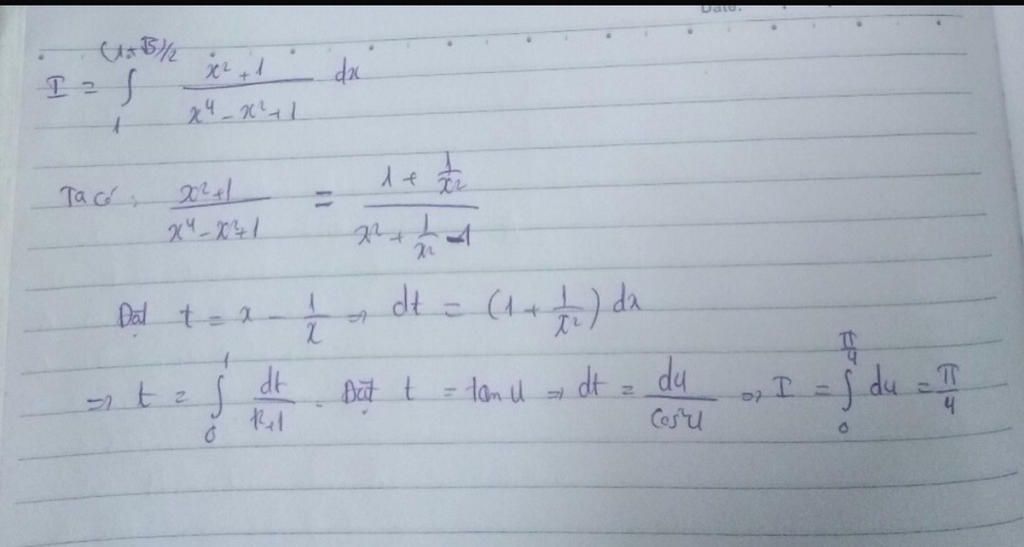 Date:
I = ∫₁^((1+√5)/2) (x²+1)/(x⁴-x²+1) dx
Ta có: (x²+1)/(x⁴-x²+1) = (1+1/x²)/(x²+1/x²-1)
Đặt t = x - 1/x ⇒ dt = (1+1/x²)dx
⇒ t = ∫₀¹ dt/(t²+1). Đặt t = tan u ⇒ dt = du/cos²u ⇒ I = ∫₀^(π/4) du = π/4